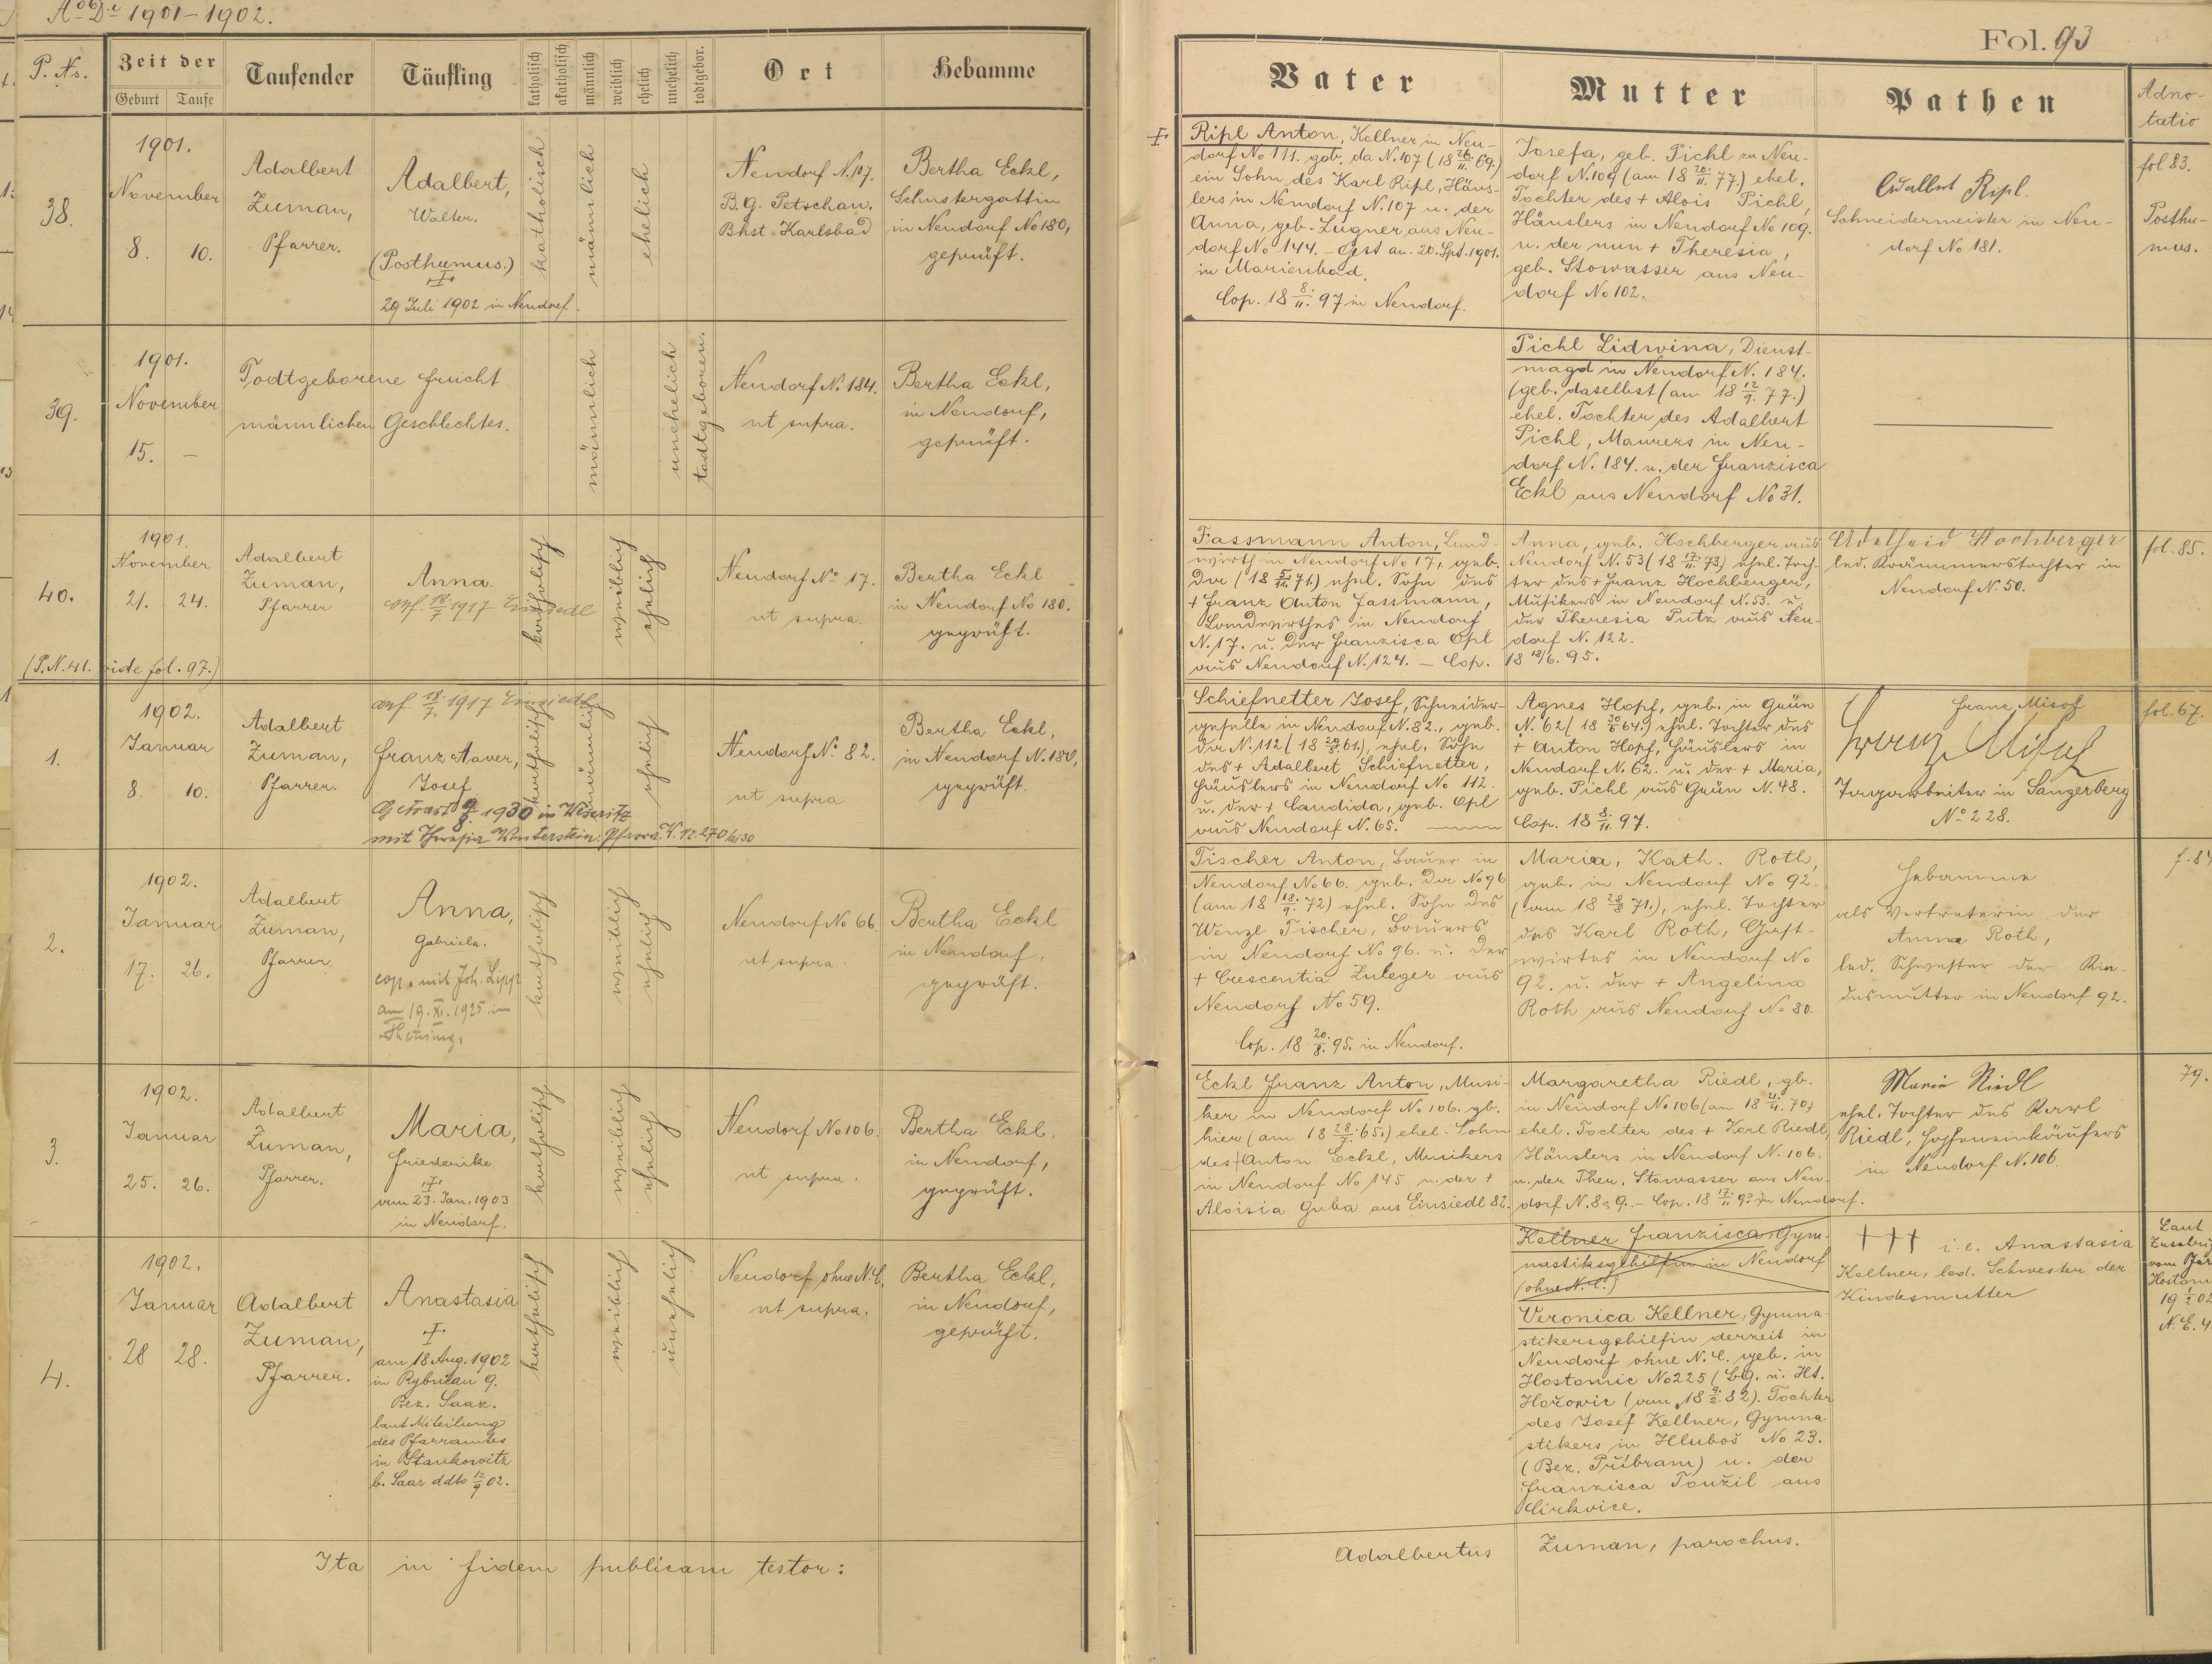 Ao Di 1901-1902.
P. Ns.
Zeit der
Geburt Taufe
Taufender
Täufling
katholisch
akatholisch
männlich
weiblich
ehelich
unehelich
todtgebor.
Ort
Hebamme
38.
1901.
November
8. 10.
Adalbert
Zuman,
Pfarrer.
Adalbert,
Walter.
(Posthumus.)
29 Juli 1902 in Neudorf.
katholisch
männlich
ehelich
Neudorf N. 107.
B.g. Petschau.
Bhst Karlsbad
Bertha Eckl,
Schustergattin
in Neudorf No 180,
geprüft.
39.
1901.
November
15. —
Todtgeborene Frucht
männlichen Geschlechtes.
männlich
unehelich
todtgeboren.
Neudorf N. 184.
ut supra.
Bertha Eckl,
in Neudorf,
geprüft.
40.
1901.
November
21. 24.
Adalbert
Zuman,
Pfarrer
Anna.
conf. 18/7. 1917 Einsiedl
katholisch
weiblich
ehelich
Neudorf No 17.
ut supra.
Bertha Eckl
in Neudorf No 180.
geprüft.
(P.N. 41. vide fol. 97.)
1.
1902.
Januar
8. 10.
Adalbert
Zuman,
Pfarrer.
conf. 18/7. 1917 Einsiedl
Franz Xaver,
Josef
Getraut 9/8. 1930 in Weseritz
mit Theresia Winterstein.
katholisch
männlich
ehelich
Neudorf No 82.
ut supra
Bertha Eckl,
in Neudorf N. 180,
geprüft.
2.
1902.
Januar
17. 26.
Adalbert
Zuman,
Pfarrer
Anna,
Gabriela.
cop. mit Joh. Lippl
am 19. XI. 1925 in
Theusing.
katholisch
weiblich
ehelich
Neudorf No 66.
ut supra.
Bertha Eckl
in Neudorf,
geprüft.
3.
1902.
Januar
25. 26.
Adalbert
Zuman,
Pfarrer.
Maria,
Friederike
vom 23. Jan. 1903
in Neudorf.
katholisch
weiblich
ehelich
Neudorf No 106.
ut supra.
Bertha Eckl,
in Neudorf,
geprüft.
4.
1902.
Januar
28 28.
Adalbert
Zuman,
Pfarrer.
Anastasia
am 18 Aug. 1902
in Rybnian 9.
Bez. Saaz.
laut Miteilung
des Pfarramtes
in Stankowitz
b. Saaz ddto 12/9 02.
katholisch
weiblich
unehelich
Neudorf ohne N.C.
ut supra.
Bertha Eckl,
in Neudorf,
geprüft.
Ita in fidem publicam testor:
Fol. 93
Vater
Mutter
Pathen
Adno-
tatio
Ripl Anton, Kellner in Neu-
dorf No 111. geb. da N. 107 (18 26/11. 69.)
ein Sohn des Karl Ripl, Häus-
lers in Neudorf N. 107 u. der
Anna, geb. Lugner aus Neu-
dorf No 144. – Gest am. 20. Spt. 1901.
in Marienbad.
Cop. 18 8/11. 97 in Neudorf.
Josefa, geb. Pichl zu Neu-
dorf N. 109 (am 18 20/11. 77.) ehel.
Tochter des + Alois Pichl,
Häuslers in Neudorf No 109.
u. der nun + Theresia,
geb. Stowasser aus Neu-
dorf No 102.
Adalbert Ripl.
Schneidermeister in Neu-
dorf No 181.
fol 83.
Posthu-
mus.
Pichl Lidwina, Dienst-
magd in Neudorf N. 184.
(geb. daselbst (am 18 12/9. 77.)
ehel. Tochter des Adalbert
Pichl, Maurers in Neu-
dorf N. 184. u. der Franzisca
Eckl aus Neudorf No 31.
Fassmann Anton, Land-
wirth in Neudorf No 17, geb.
da (18 5/11. 71.) ehel. Sohn des
+ Franz Anton Fassmann,
Landwirthes in Neudorf
N. 17. u. der Franzisca Opl
aus Neudorf N. 124. – Cop. 18 18/6. 95.
Anna, geb. Hochberger aus
Neudorf N. 53 (18 17/11. 73) ehel. Toch-
ter des + Franz Hochberger,
Musikers in Neudorf N. 53. u.
der Theresia Putz aus Neu-
dorf N. 122.
Adelheid Hochberger
led. Krämmerstochter in
Neudorf N. 50.
fol. 85.
Schiefnetter Josef, Schneider-
geselle in Neudorf N. 82., geb.
da N. 112 (18 61.), ehel. Sohn
des + Adalbert Schiefnetter,
Häuslers in Neudorf No 112.
u. der + Candida, geb. Opl
aus Neudorf N. 65.
Agnes Hopf, geb. in Grün
N. 62 (18 30/6 64.) ehel. Tochter des
+ Anton Hopf, Häuslers in
Neudorf N. 62. u. der + Maria,
geb. Pichl aus Grün N. 48.
Cop. 18 8/11. 97.
Franz Misof
Franz Misof
Tagarbeiter in Sangerberg
No 228.
fol. 67.
Tischer Anton, Bauer in
Neudorf No 66. geb. da No 96
(am 18 18/9. 72) ehel. Sohn des
Wenzl Tischer, Bauers
in Neudorf No 96. u. der
+ Crescentia Zuleger aus
Neudorf No 59.
Cop. 18 20/8. 95. in Neudorf.
Maria, Kath. Roth,
geb. in Neudorf No 92.
(am 18 28/8 71.), ehel. Tochter
des Karl Roth, Gast-
wirtes in Neudorf No
92. u. der + Angelina
Roth aus Neudorf No 80.
Hebamme
als Vertreterin der
Anna Roth,
led. Schwester der Kin-
desmutter in Neudorf 92.
Eckl Franz Anton, Musi-
ker in Neudorf No 106. gb.
hier (am 18 28/7. 65.) ehel. Sohn
des + Anton Eckl, Musikers
in Neudorf No 145 u. der +
Aloisia Guba aus Einsiedl 82.
Margaretha Riedl, gb.
in Neudorf No 106 (am 18 21/4. 70.)
ehel. Tochter des + Karl Riedl,
Häuslers in Neudorf N. 106.
u. der Ther. Stowasser aus Neu-
dorf N. 89. – Cop. 18 17/11 93 in Neudorf.
Marie Riedl
ehel. Tochter des Karl
Riedl, Hopfeneinkäufers
in Neudorf N. 106.
79.
Kellner Franzisca, Gym-
nastiksgehilfin in Neudorf
(ohne N. C.)
Veronica Kellner, Gymna-
stikersgehilfin derzeit in
Neudorf ohne N. C. geb. in
Hostomic No 225 (Bg. u. Ht.
Hořovic (am 18 9/2. 82). Tochter
des Josef Kellner, Gymna-
stikers in Hluboš No 23.
(Bez. Příbram) u. der
Franzisca Toužil aus
Cirkvice.
+++ i.e. Anastasia
Kellner, led. Schwester der
Kindesmutter
Laut
vom
Hostom
Adalbertus Zuman, parochus.